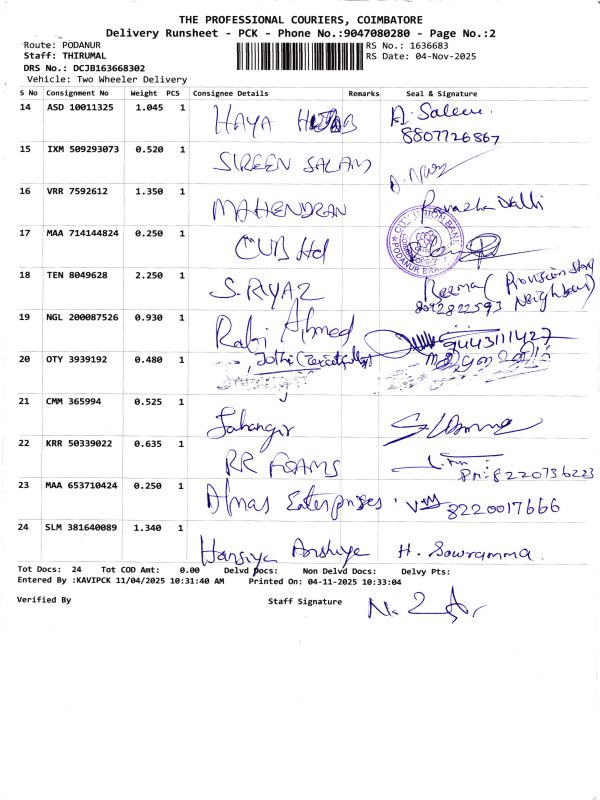 THE PROFESSIONAL COURIERS, COIMBATORE
Delivery Runsheet - PCK - Phone No.:9047080280 - Page No.:2
Route: PODANUR
RS No.: 1636683
Staff: THIRUMAL
RS Date: 04-Nov-2025
DRS No.: DCJB163668302
Vehicle: Two Wheeler Delivery
S No Consignment No Weight PCS Consignee Details Remarks Seal & Signature
14 ASD 10011325 1.045 1 HAYA A. Saleem
8807726867
15 IXM 509293073 0.520 1 SIREEN SALAM
16 VRR 7592612 1.350 1 MAHENDRAN
17 MAA 714144824 0.250 1 CUB Ltd CITY UNION BANK PODANUR
18 TEN 8049628 2.250 1 S. RIYAZ Reema (Provision Store
Neighbour)
19 NGL 200087526 0.930 1 Rabi Ahmed 9443111427
20 OTY 3939192 0.480 1 Jothi
21 CMM 365994 0.525 1 Jahangir
22 KRR 50339022 0.635 1 RR FOAMS
Ph: 8220736223
23 MAA 653710424 0.250 1 Almas Enterprises 8220017666
24 SLM 381640089 1.340 1 H. Sowramma
Tot Docs: 24 Tot COD Amt: 0.00 Delvd Docs: Non Delvd Docs: Delvy Pts:
Entered By :KAVIPCK 11/04/2025 10:31:40 AM Printed On: 04-11-2025 10:33:04
Verified By Staff Signature